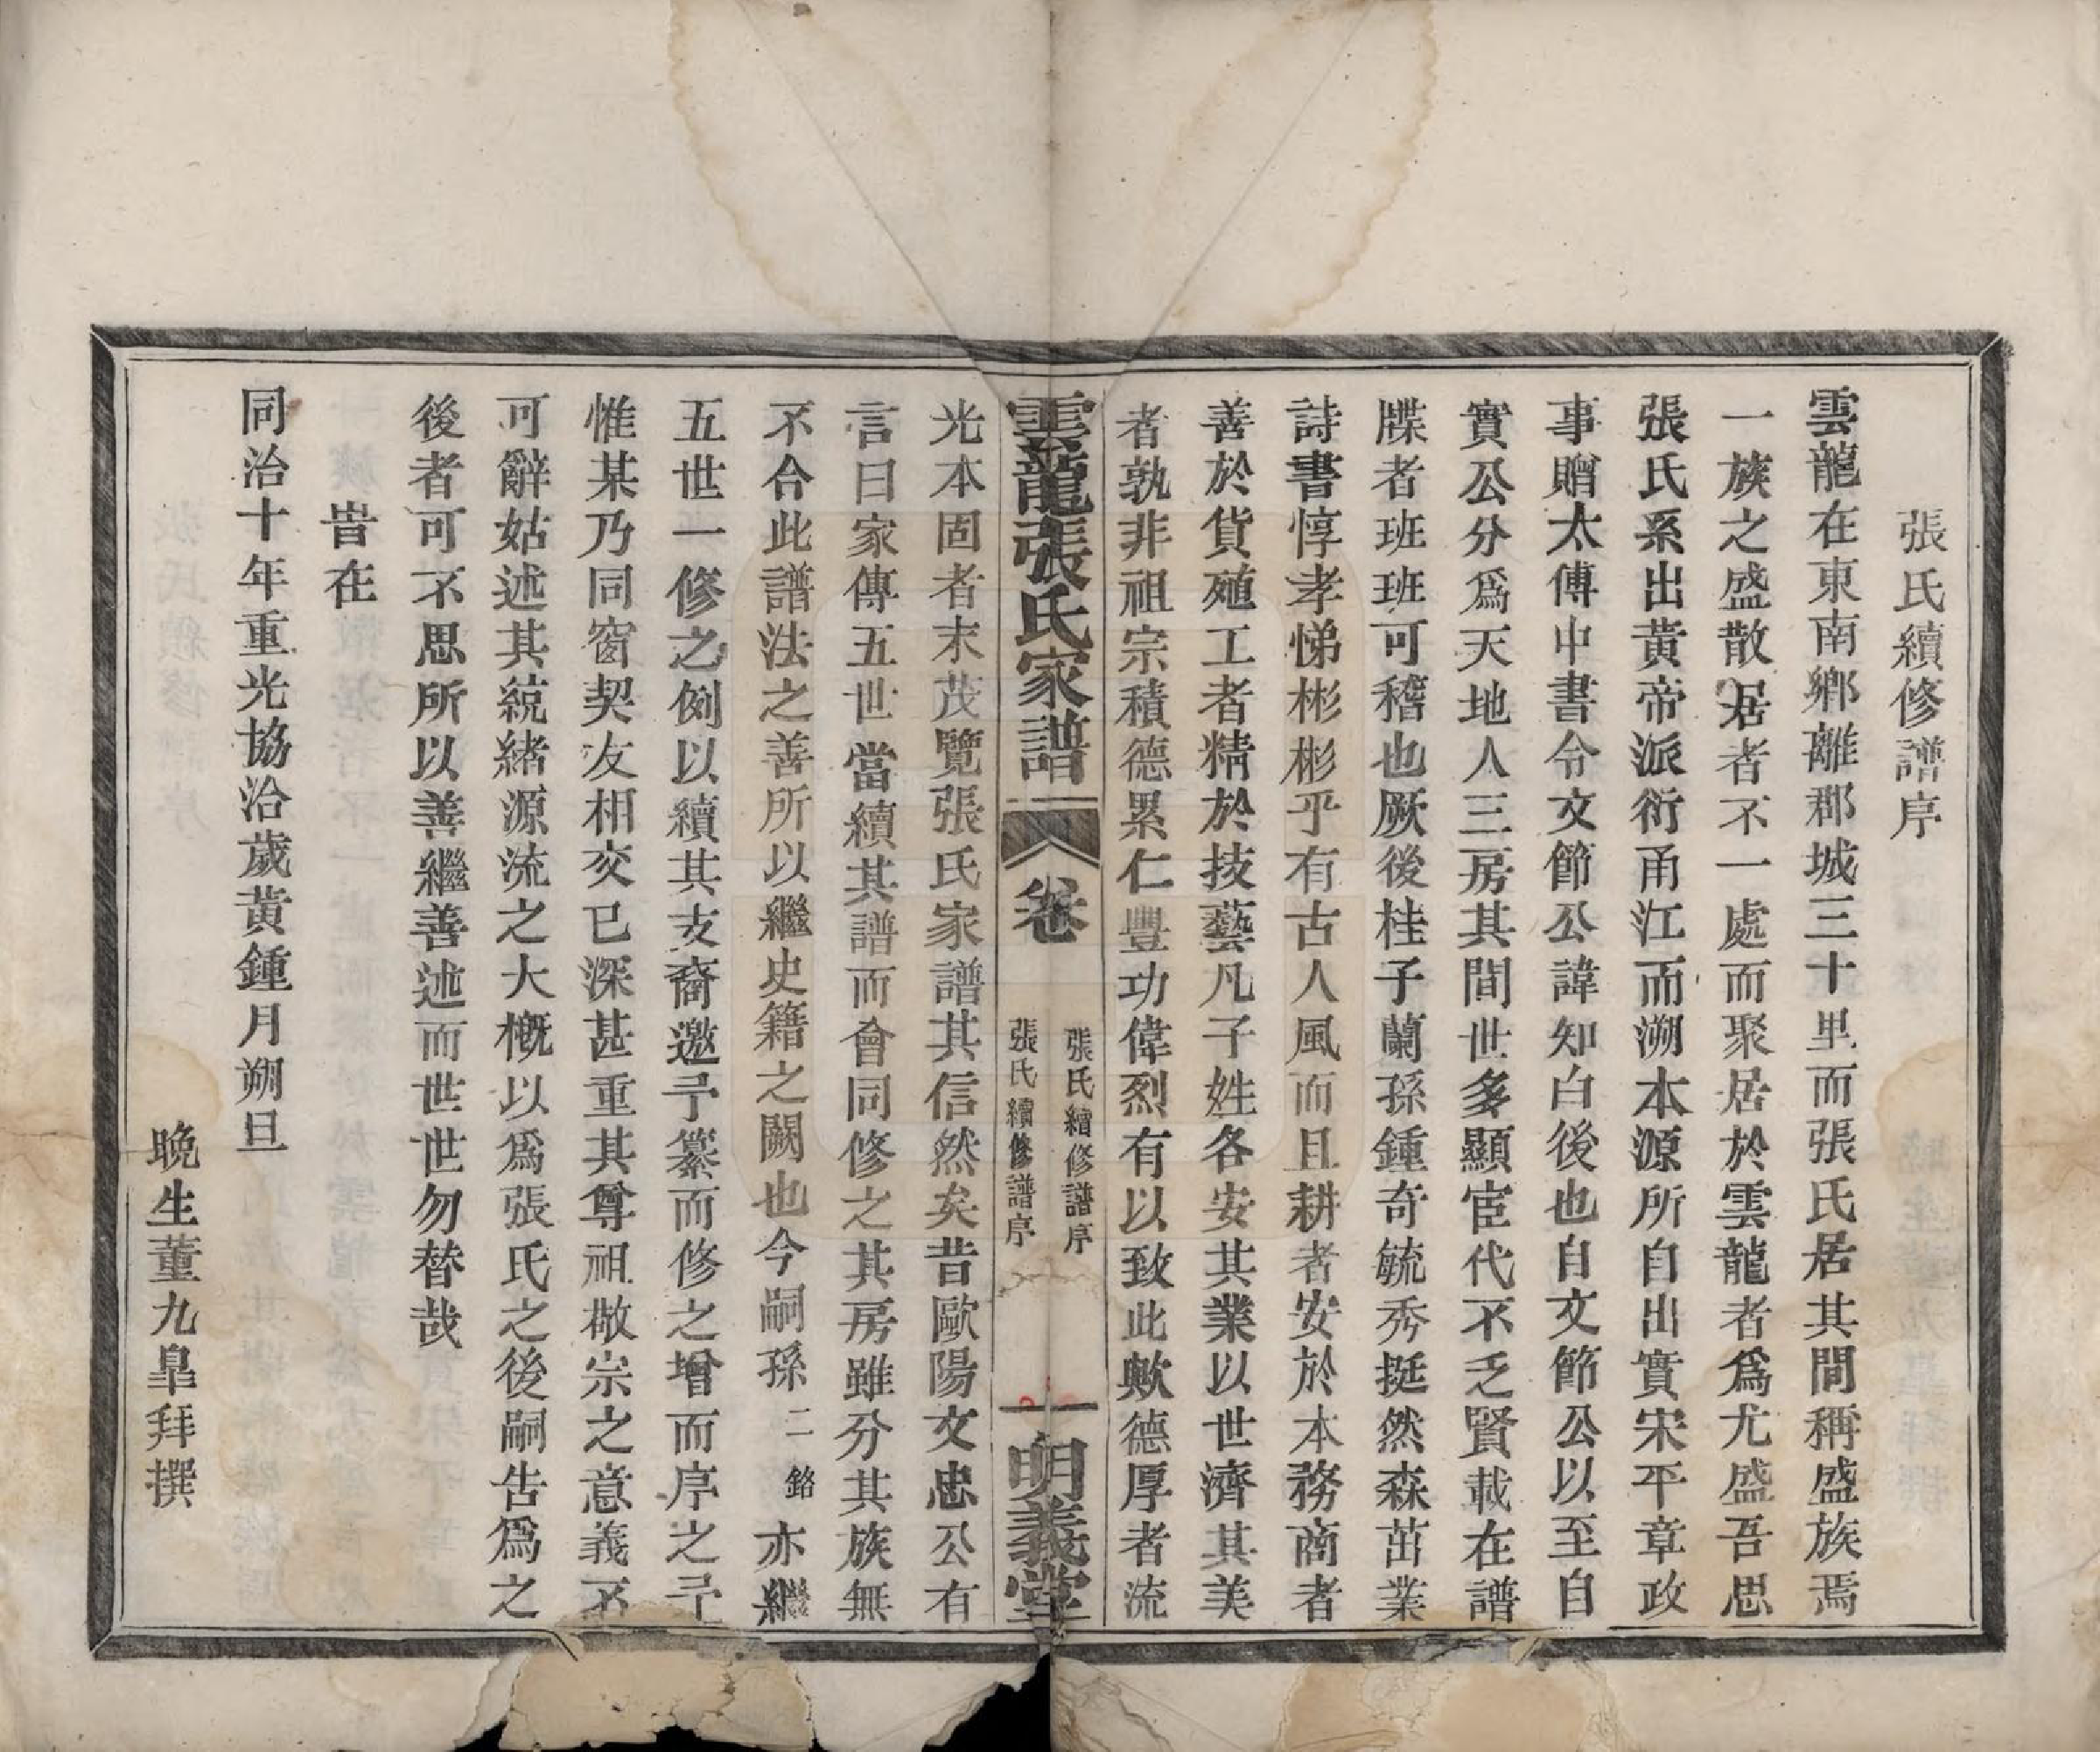 張氏續修譜序
雲龍在東南鄉離郡城三十里而張氏居其間稱盛族焉
一族之盛散居者不一處而聚居於雲龍者爲尤盛吾思
張氏系出黃帝派衍甬江而溯本源所自出實宋平章政
事贈太傅中書令文節公諱知白後也自文節公以至自
實公分爲天地人三房其間世多顯宦代不乏賢載在譜
牒者班班可稽也厥後桂子蘭孫鍾奇毓秀挺然森茁業
詩書惇孝悌彬彬乎有古人風而且耕者安於本務商者
善於貨殖工者精於技藝凡子姓各安其業以世濟其美
者孰非祖宗積德累仁豐功偉烈有以致此歟德厚者流
雲龍張氏家譜
卷
張氏續修譜序
張氏續修譜序
一
明義堂
光本固者末茂覽張氏家譜其信然矣昔歐陽文忠公有
言曰家傳五世當續其譜而會同修之其房雖分其族無
不合此譜法之善所以繼史籍之闕也今嗣孫二銘亦繼
五世一修之例以續其支裔邀予纂而修之增而序之予
惟某乃同窗契友相交已深甚重其尊祖敬宗之意義不
可辭姑述其統緒源流之大槪以爲張氏之後嗣吿爲之
後者可不思所以善繼善述而世世勿替哉
旹在
同治十年重光協洽歲黃鍾月朔旦
晚生董九臯拜撰